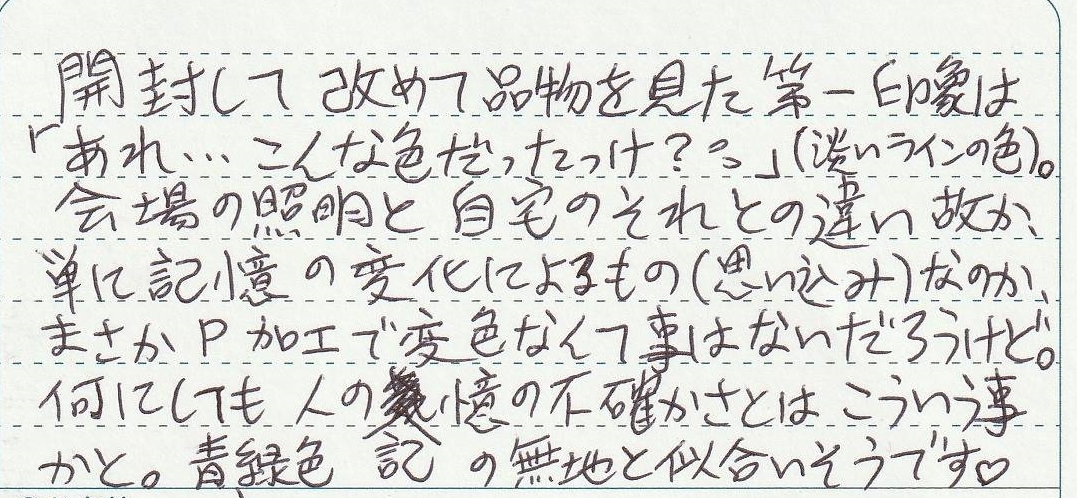 開封して改めて品物を見た第一印象は
「あれ…こんな色だったっけ？」(淡いラインの色)。
会場の照明と自宅のそれとの違い故か、
単に記憶の変化によるもの(思い込み)なのか、
まさかP加工で変色なんて事はないだろうけど。
何にしても人の記憶の不確かさとはこういう事
かと。青緑色の無地と似合いそうです♡